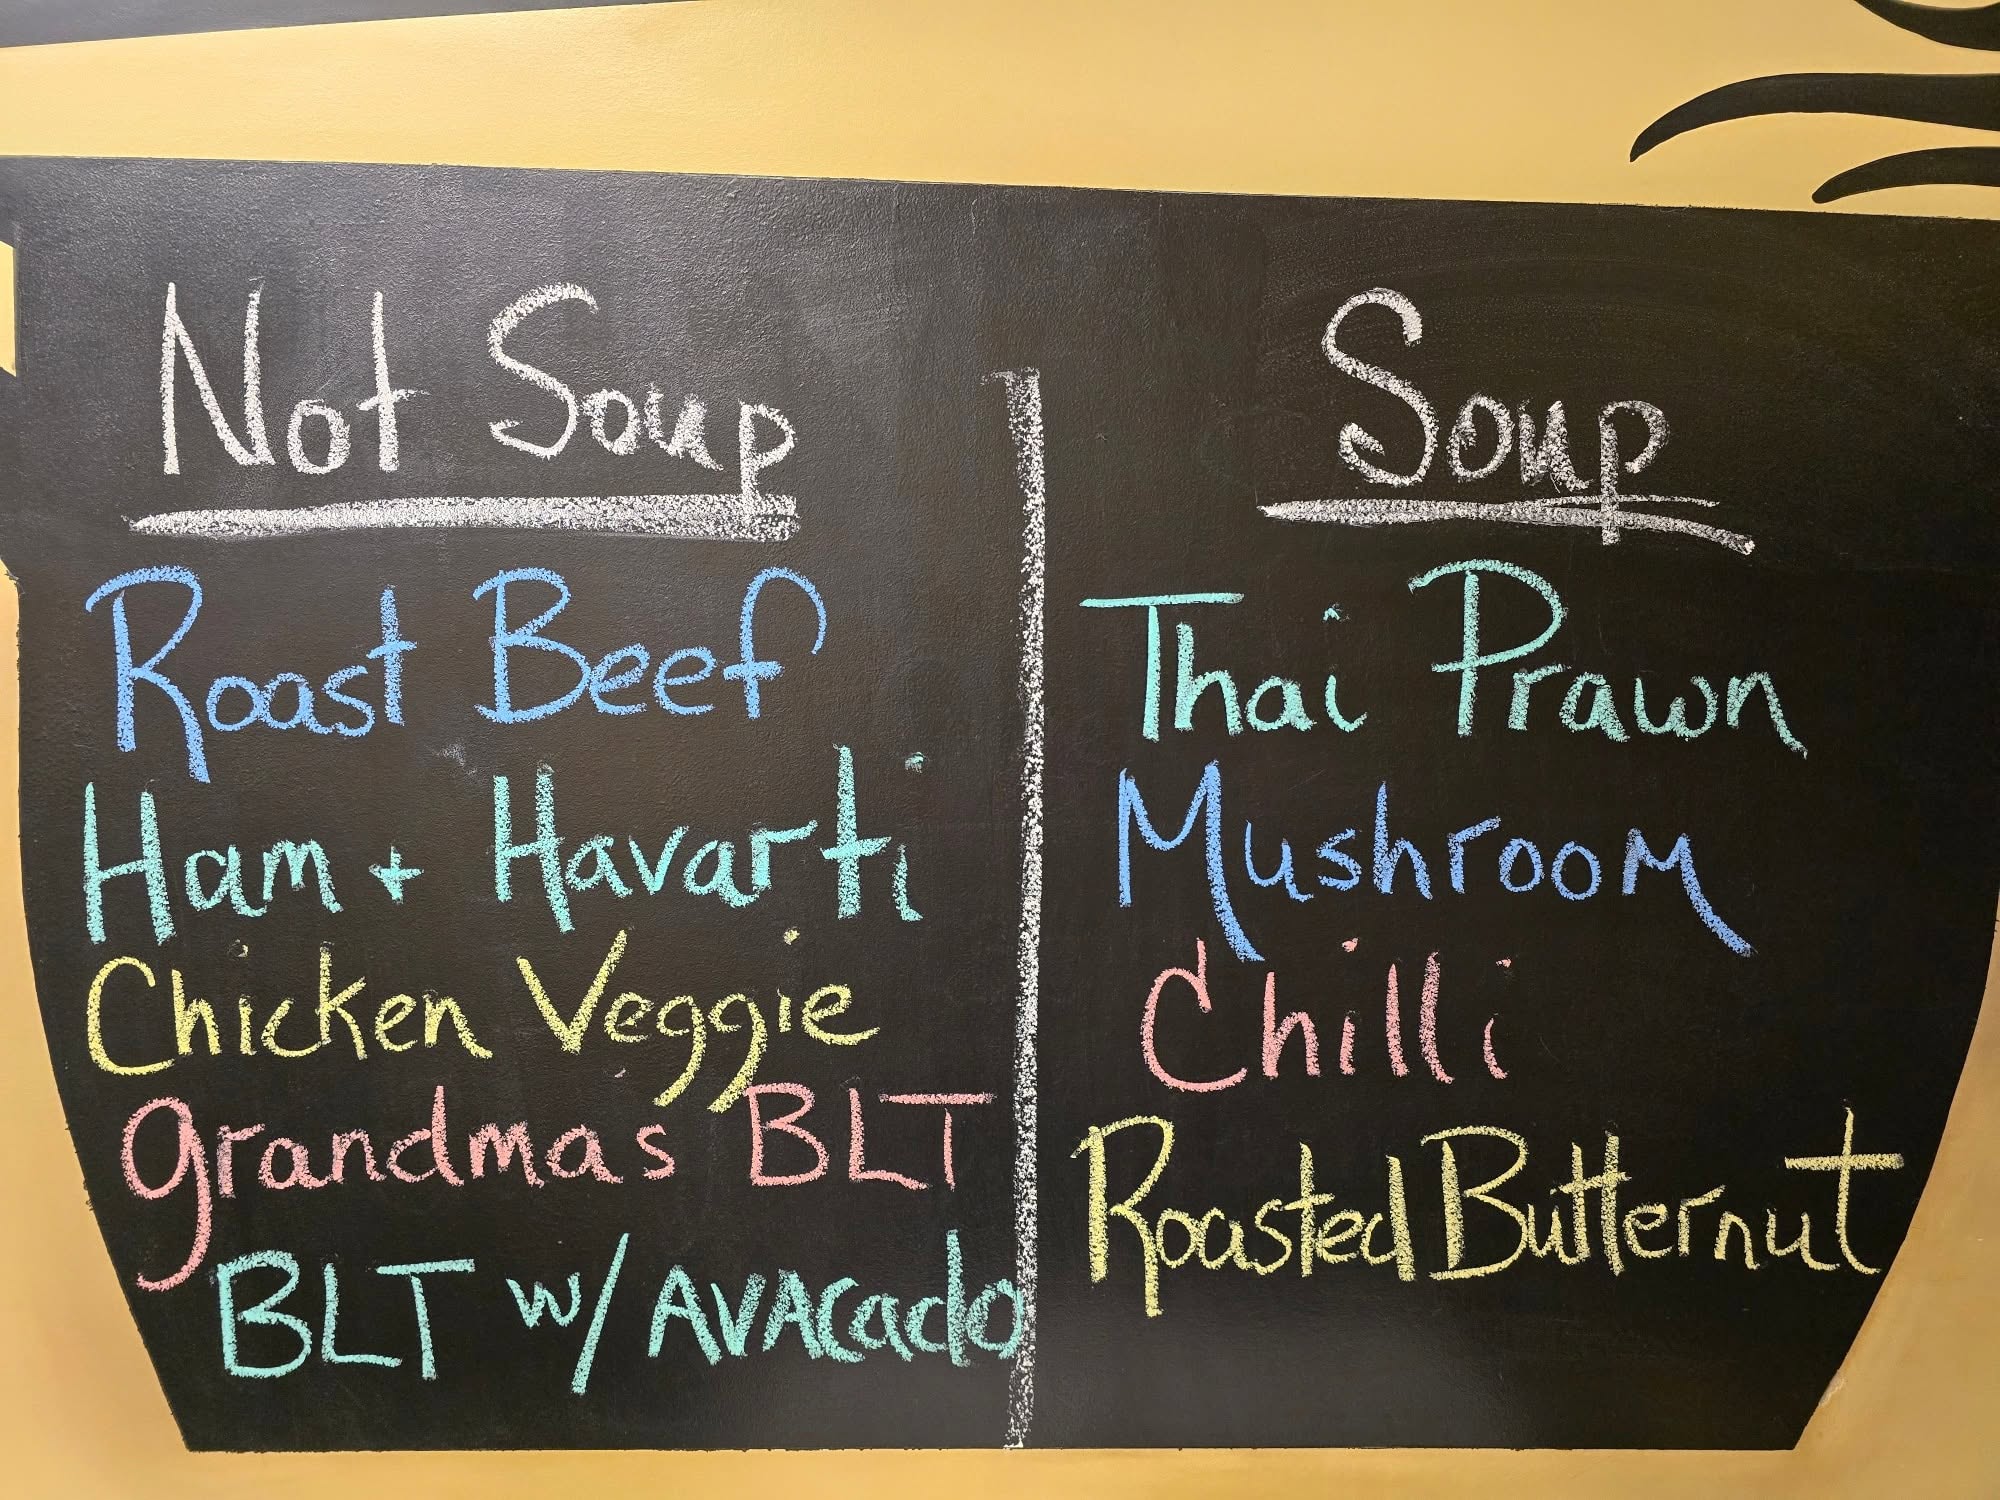 Not Soup
Roast Beef
Ham + Havarti
Chicken Veggie
grandmas BLT
BLT w/ AVACado
Soup
Thai Prawn
Mushroom
Chilli
Roasted Butternut